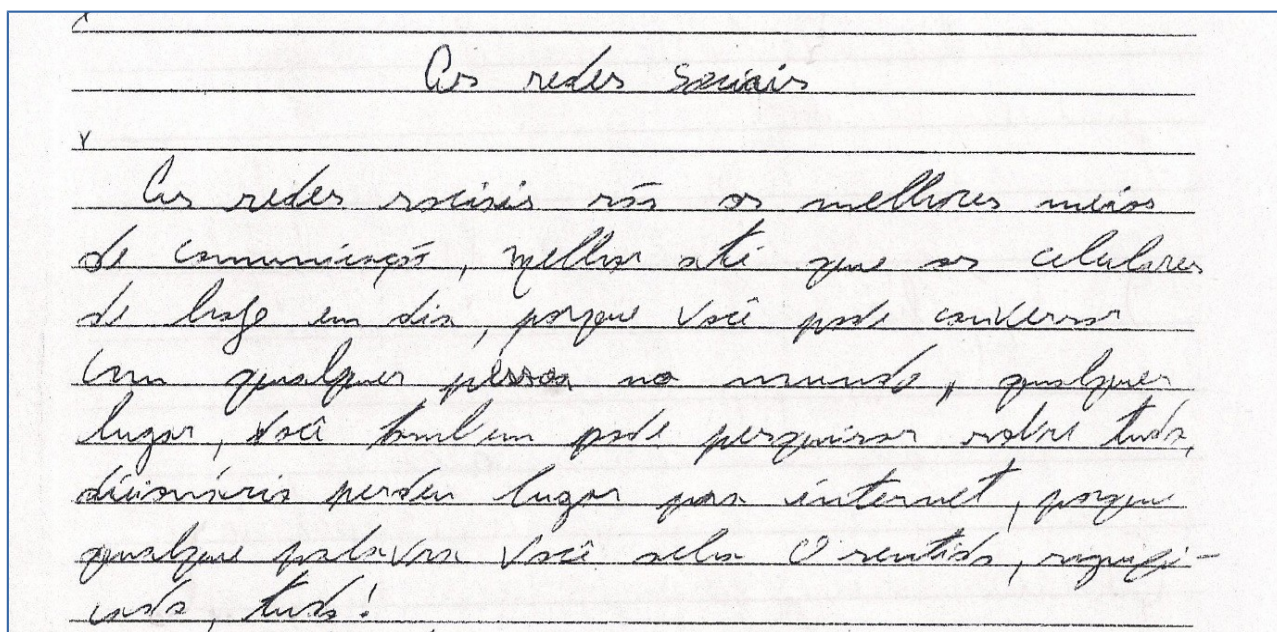 As redes sociais
As redes sociais são os melhores meios
de comunicação, melhor até que os celulares
de hoje em dia, porque você pode conversar
com qualquer pessoa no mundo, qualquer
lugar, você tambem pode pesquisar sobre tudo,
dicionário perdeu lugar para internet, porque
qualque palavra você acha o sentido, signifi-
cado, tudo!